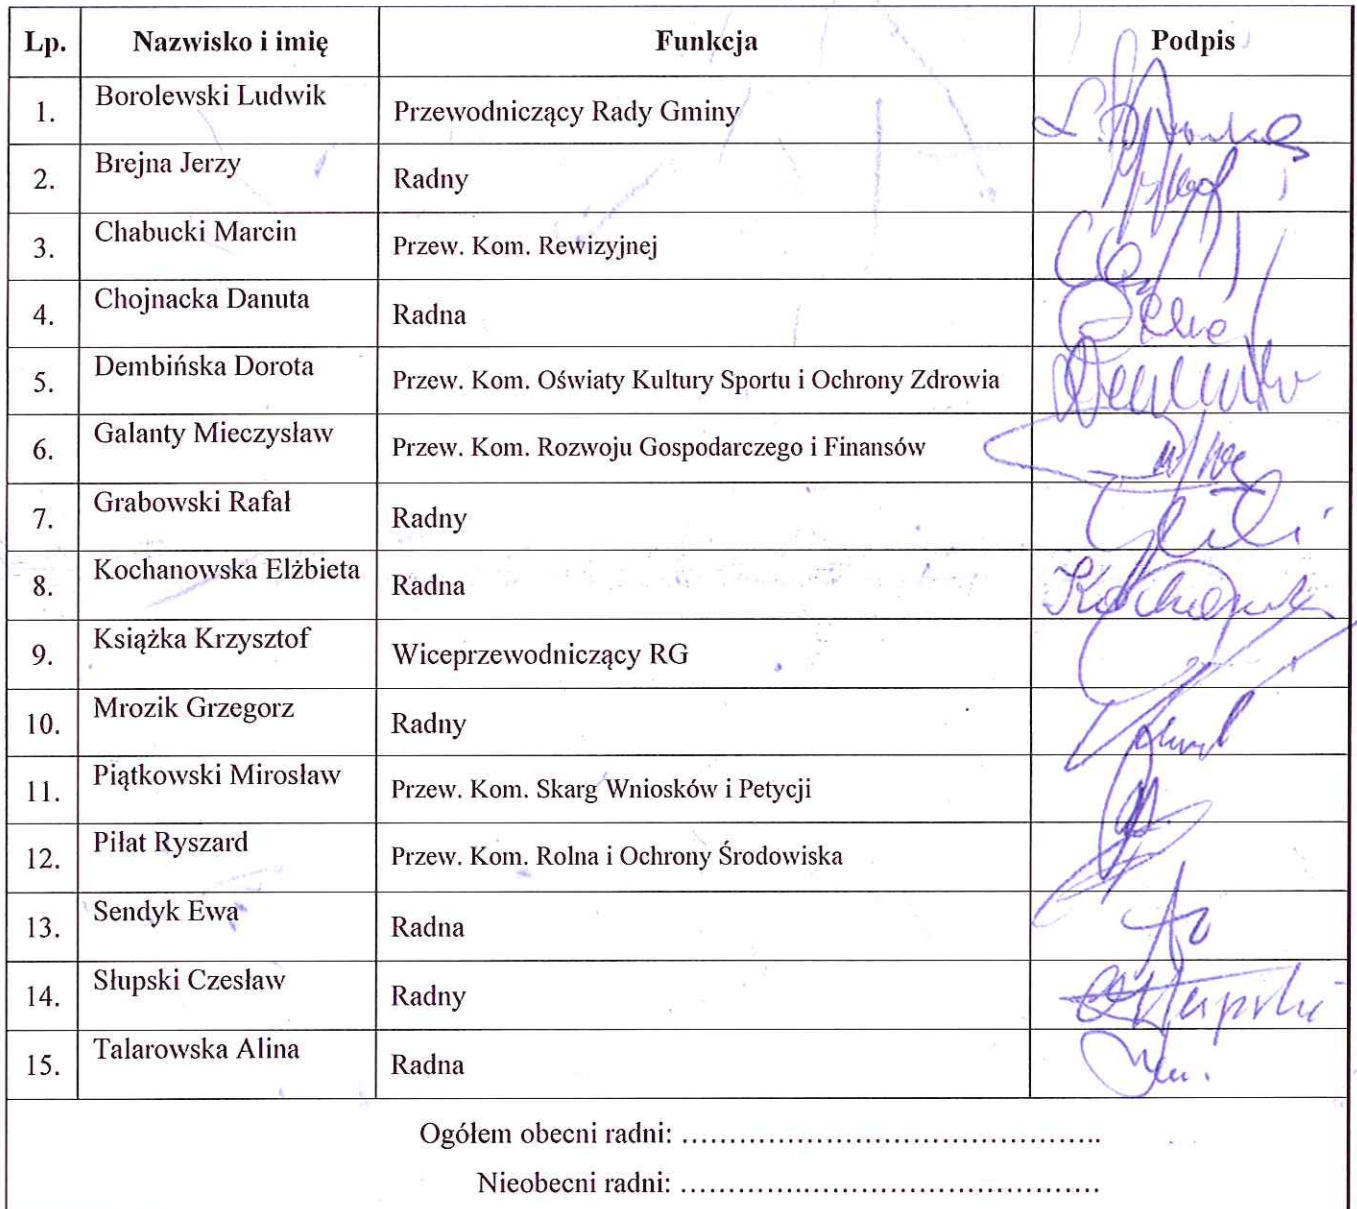 Lp. Nazwisko i imię Funkcja Podpis
1. Borolewski Ludwik Przewodniczący Rady Gminy
2. Brejna Jerzy Radny
3. Chabucki Marcin Przew. Kom. Rewizyjnej
4. Chojnacka Danuta Radna
5. Dembińska Dorota Przew. Kom. Oświaty Kultury Sportu i Ochrony Zdrowia
6. Galanty Mieczysław Przew. Kom. Rozwoju Gospodarczego i Finansów
7. Grabowski Rafał Radny
8. Kochanowska Elżbieta Radna
9. Książka Krzysztof Wiceprzewodniczący RG
10. Mrozik Grzegorz Radny
11. Piątkowski Mirosław Przew. Kom. Skarg Wniosków i Petycji
12. Piłat Ryszard Przew. Kom. Rolna i Ochrony Środowiska
13. Sendyk Ewa Radna
14. Słupski Czesław Radny
15. Talarowska Alina Radna
Ogółem obecni radni: …………………………………………..
Nieobecni radni: …………………………………………